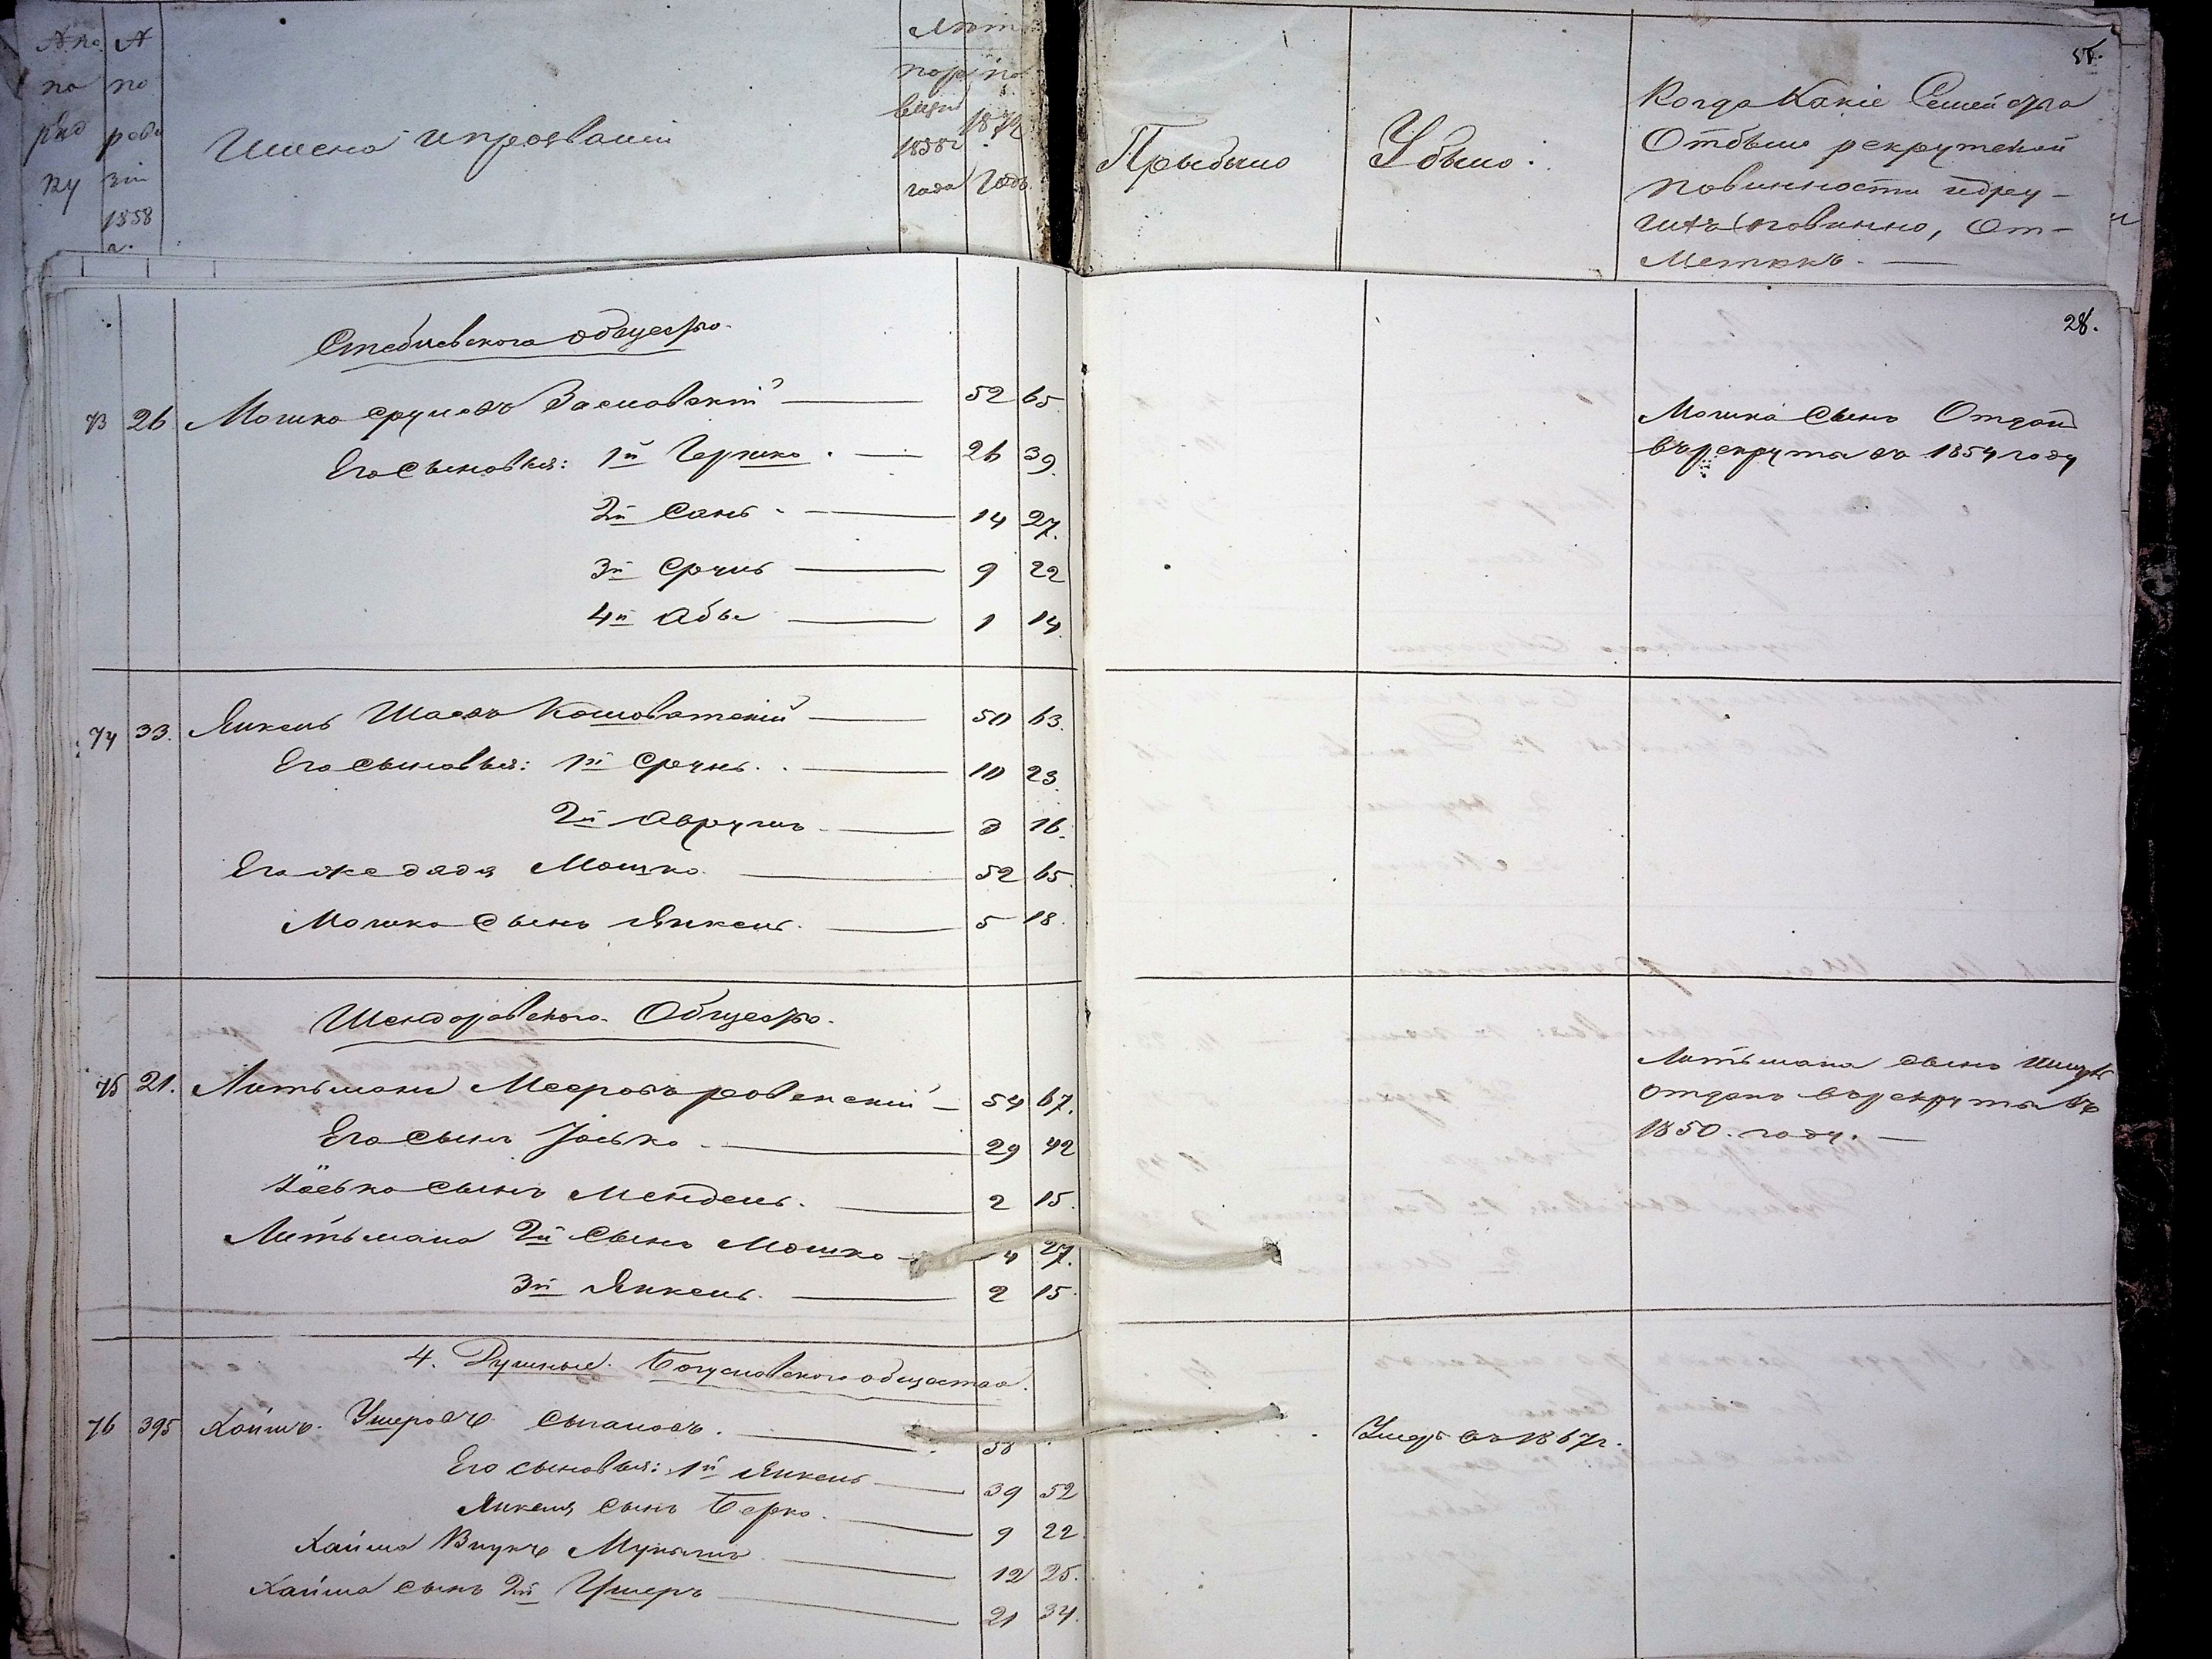 № по
№
по
по
ряд
реви
ку
зіи
1858
г.
Имена и прозванія
Лѣта
по ре
по
визіи
1858
187
года
Годъ
Прыбыло
Убыло:
Когда Какіе Семейства
Отбыли рекрутской
повинности
повинно, От-
метокъ. —
28.
Стеблевского общества.
73 26 Мошко Сруловъ Заславскій — 52 65
Его сыновья: 1й Гершко. — 26 39.
2й Санъ — 14 27.
3й Сруль — 9 22
4й Аба — 1 14.
Мошка сынъ Отдан
въ рекруты въ 1854 году
74 33. Янкель Шаевъ Кошоватскій — 50 63.
Его сыновья: 1й Сруль. — 10 23.
2й Аврумъ — 3 16.
Его же дядя Мошко. — 52 65
Мошка сынъ Янкель. — 5 18.
Шендоровского Общества.
75 21. Литьманъ Мееровъ Ровенскій — 54 67.
Его сынъ Іосько — 29 42
Іоська сынъ Мендель. — 2 15.
Литьмана 2й сынъ Мошко — 4 27.
3й Янкель. — 2 15
Литьмана сынъ
отданъ въ рекруты въ
1850. году. —
4. Душные. Богуславского общества.
76 395 Хаимъ Ушеровъ — 58
Умеръ въ 1867 г.
Его сыновья: 1й Янкель — 39 52
Янкеля сынъ Берко. — 9 22
Хаима Внукъ — 12 25.
Хаима сынъ 2й Ушеръ — 21 34.